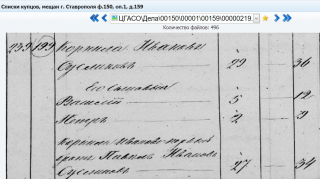 Списки купцов, мещан г. Ставрополя ф.150, оп.1, д.159
ЦГАСО\Дела\00150\00001\00159\00000219.
Количество файлов: 496
239 199 Корнила Иванов
Суслинов 29 36
Его сыновья
Василий 5 12
Петр 2 9
Корнила Иванова
братъ Павелъ Ивановъ 27 34